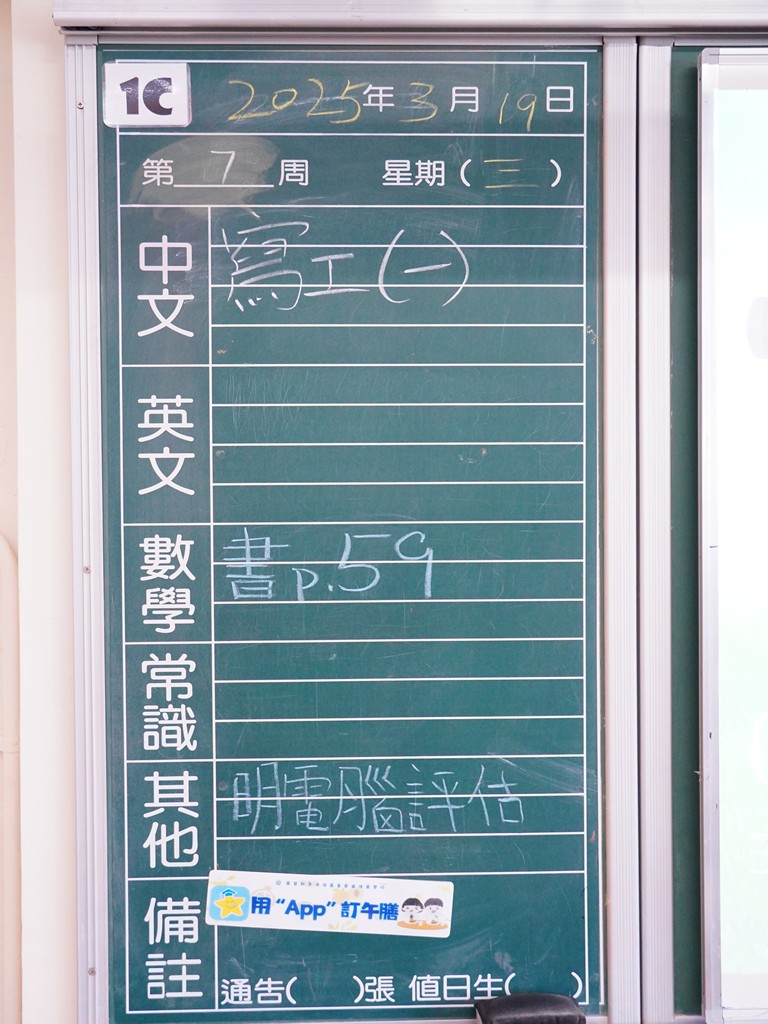 1C 2025年3月19日
第7周 星期(三)
中文 寫工(一)
英文
數學 書p.59
常識
其他 明電腦評估
備註
用“App”訂午膳
通告( )張 值日生( )